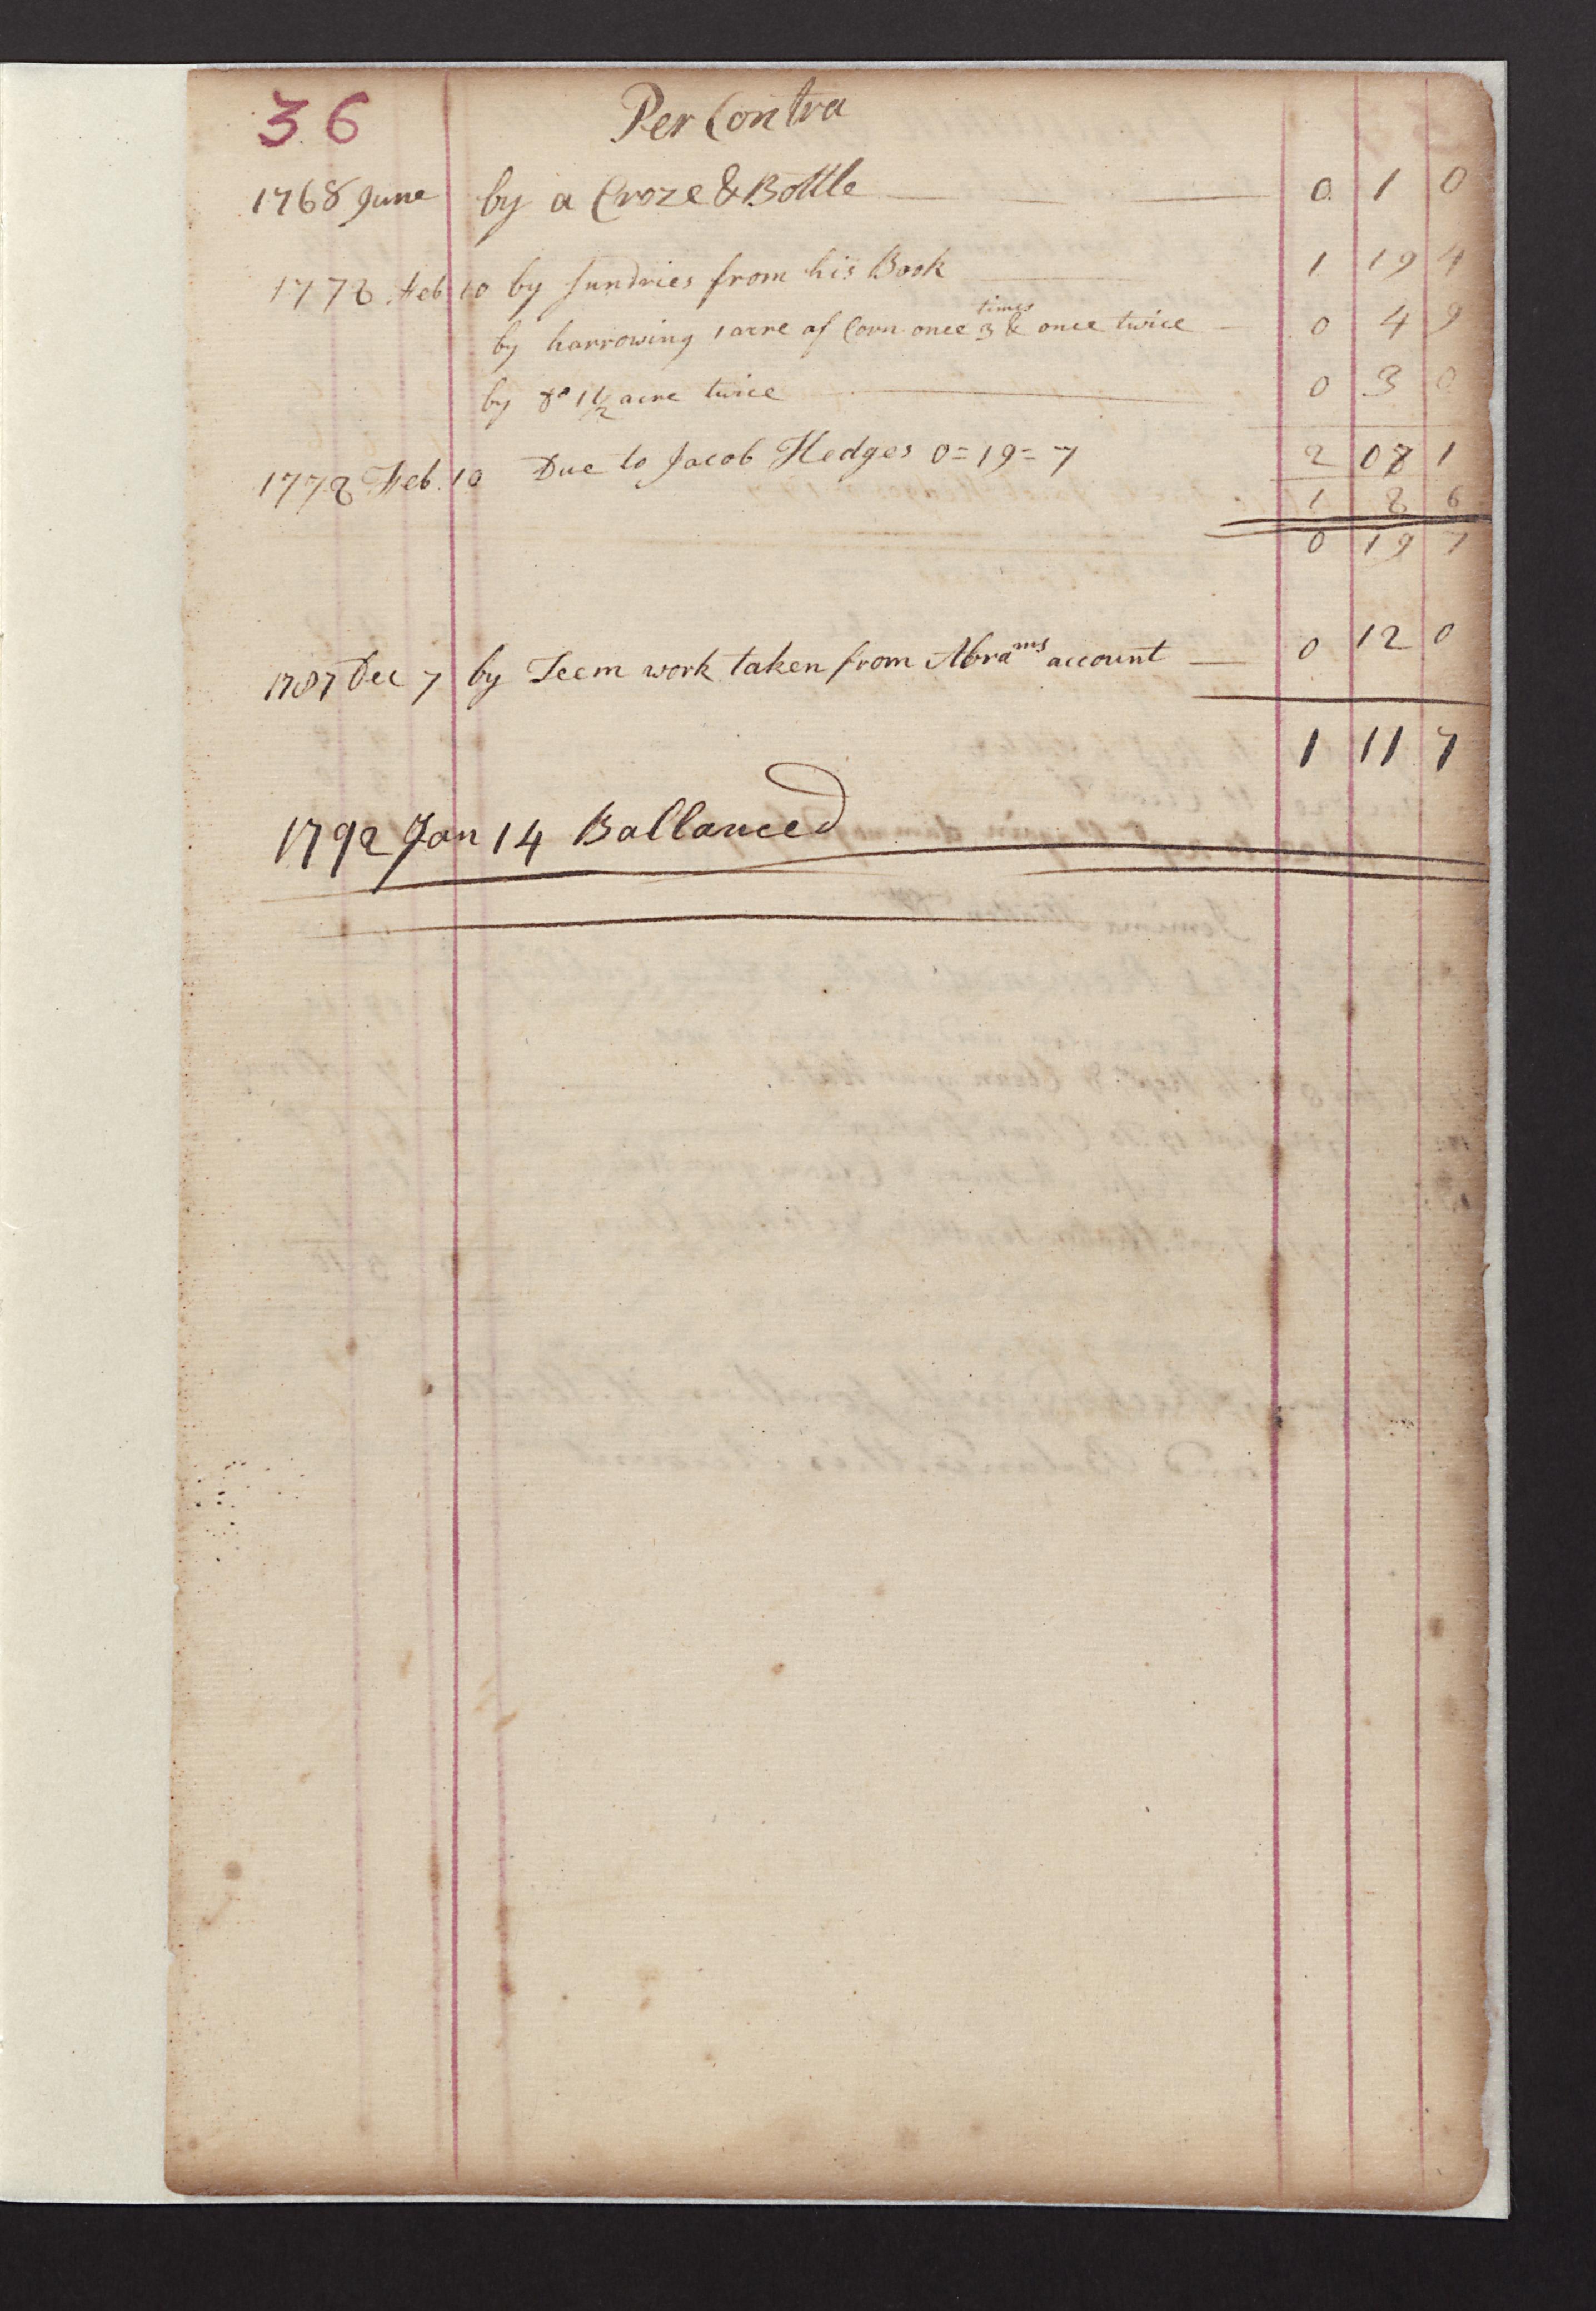 36 Per Contra
1768 June by a Croze & Bottle 0 1 0
1772 Feb 10 by sundries from his Book 1 19 4
by harrowing 1 acre of Corn once 3 times & once twice 0 4 9
by do 1 1/2 acre twice 0 3 0
1772 Feb. 10 Due to Jacob Hedges 0=19=7 2 08 1
1 8 6
0 19 7
1787 Dec 7 by Teem work taken from Abrams account 0 12 0
1 11 7
1792 Jan 14 Ballanced